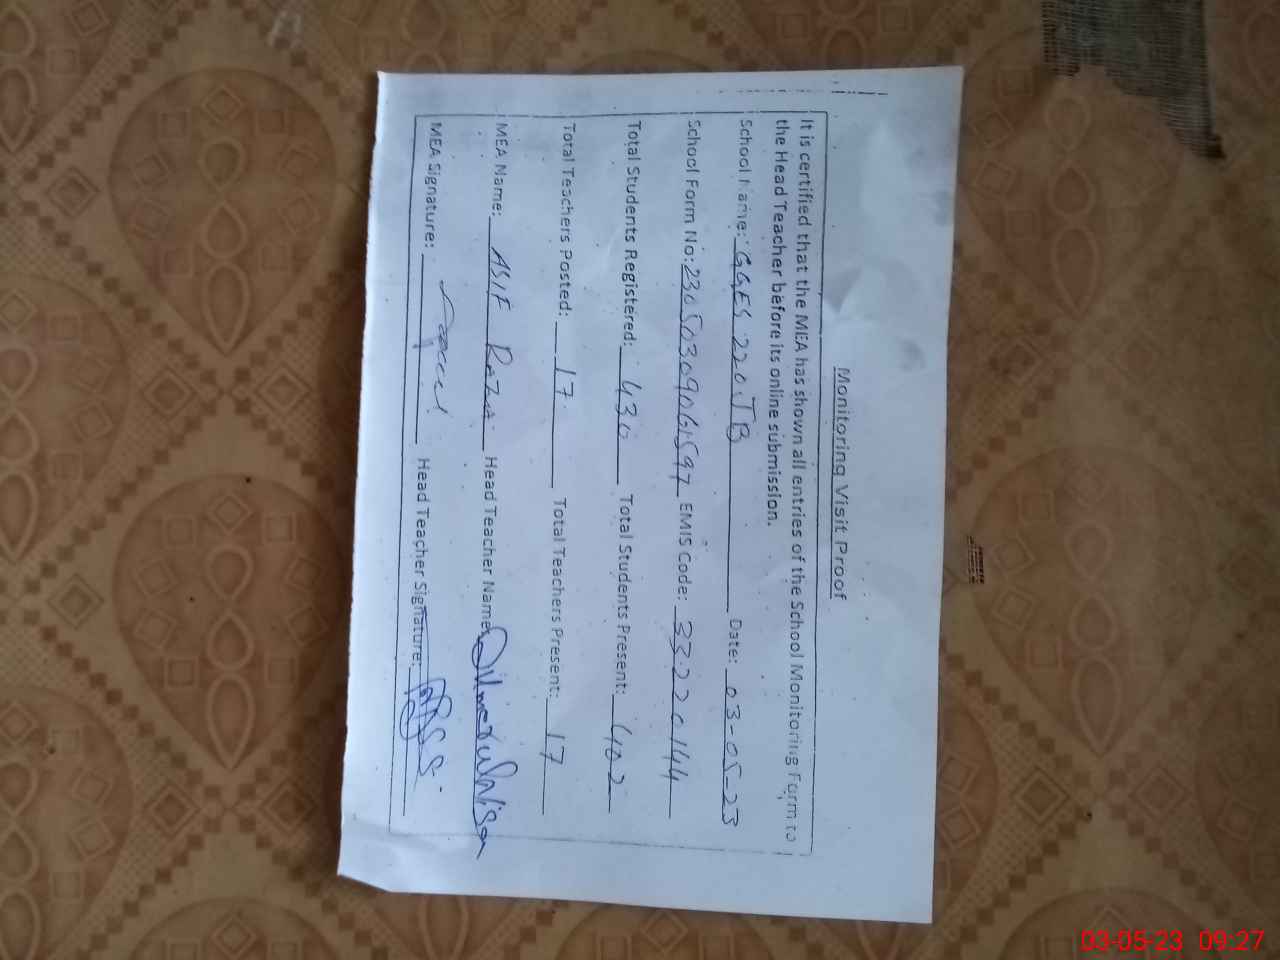 Monitoring Visit Proof
It is certified that the MEA has shown all entries of the School Monitoring Form to
the Head Teacher before its online submission.
School Name: GGES 220 JB Date: 03-05-23
School Form No: 23050309061597 EMIS Code: 33220144
Total Students Registered: 430 Total Students Present: 402
Total Teachers Posted: 17 Total Teachers Present: 17
MEA Name: ASIF RAZA Head Teacher Name:
MEA Signature: Head Teacher Signature:
03-05-23 09:27